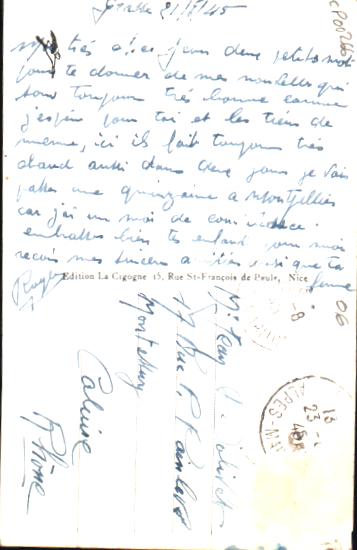 Grasse 21/7/45
deux petits mots
pour te donner de mes nouvelles qui
sont toujours très bonne comme
j'espère pour toi et les tiens de
meme, ici il fait toujours très
chaud aussi dans deux jours je vais
passer une quinzaine a Montpellier
car j'ai un mois de convalescence.
embrasse bien tes enfant pour moi
recois mes sincere amitiés ainsi que ta
femme.
Roger
Edition La Cigogne 15, Rue St-François de Paule, Nice
CP00266
06
Mr Jean
17 Rue P.
Montessuy
Caluire
Rhône
13
23
ALPES-M